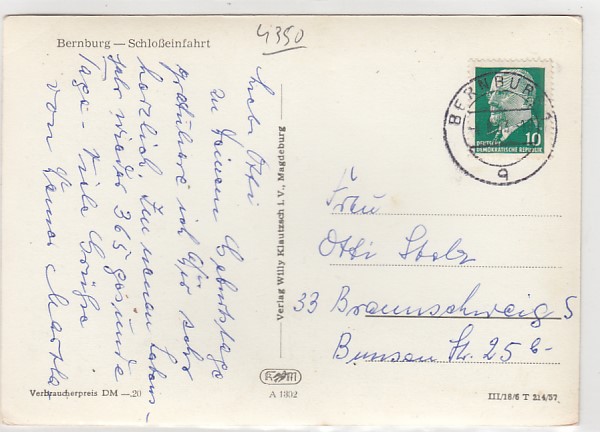 4350
Bernburg — Schloßeinfahrt
Liebe Otti
zu Deinem Geburtstage
gratuliere ich Dir sehr
herzlich. Im neuen Lebens-
jahr wieder 365 gesunde
Tage. Viele Grüße
von Deiner Martha
Verlag Willy Klautzsch i. V., Magdeburg
BERNBURG 1
q
10
DEUTSCHE
DEMOKRATISCHE REPUBLIK
Frau
Otti Stolz
33 Braunschweig S
Bunsen Str. 25 b
Verbraucherpreis DM —,20
A 1302
III/18/6 T 214/57